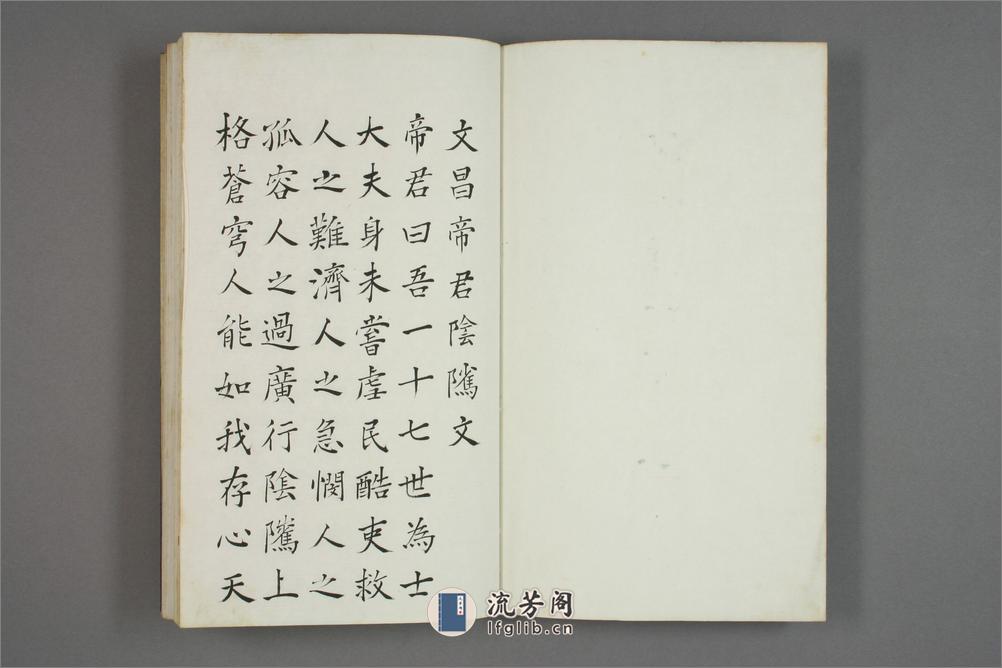 文昌帝君陰隲文
帝君曰吾一十七世為士
大夫身未嘗虐民酷吏救
人之難濟人之急憫人之
孤容人之過廣行陰隲上
格蒼穹人能如我存心天
流芳阁
lfglib.cn